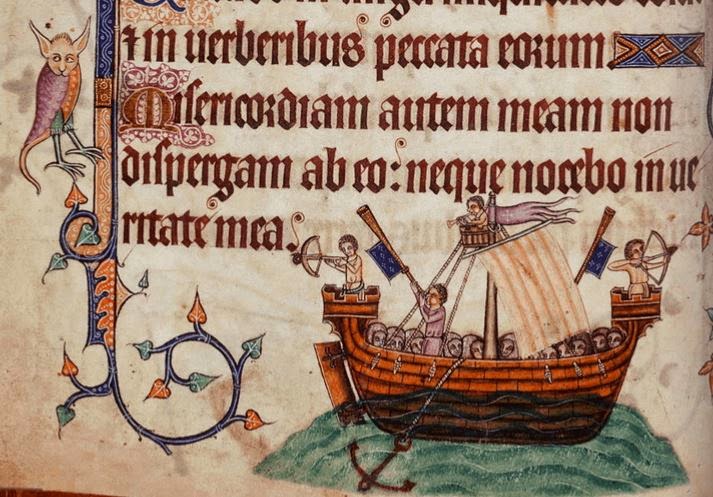 ⁊ in uerberibus peccata eorum
Misericordiam autem meam non
dispergam ab eo: neque nocebo in ue
ritate mea.